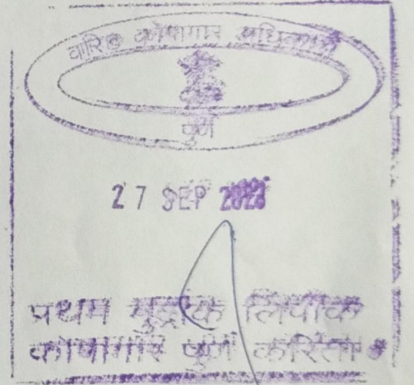 वरिष्ठ कोषागार अधिकारी
पुणे
27 SEP 2023
प्रथम मुद्रांक लिपीक
कोषागार पुणे करिता